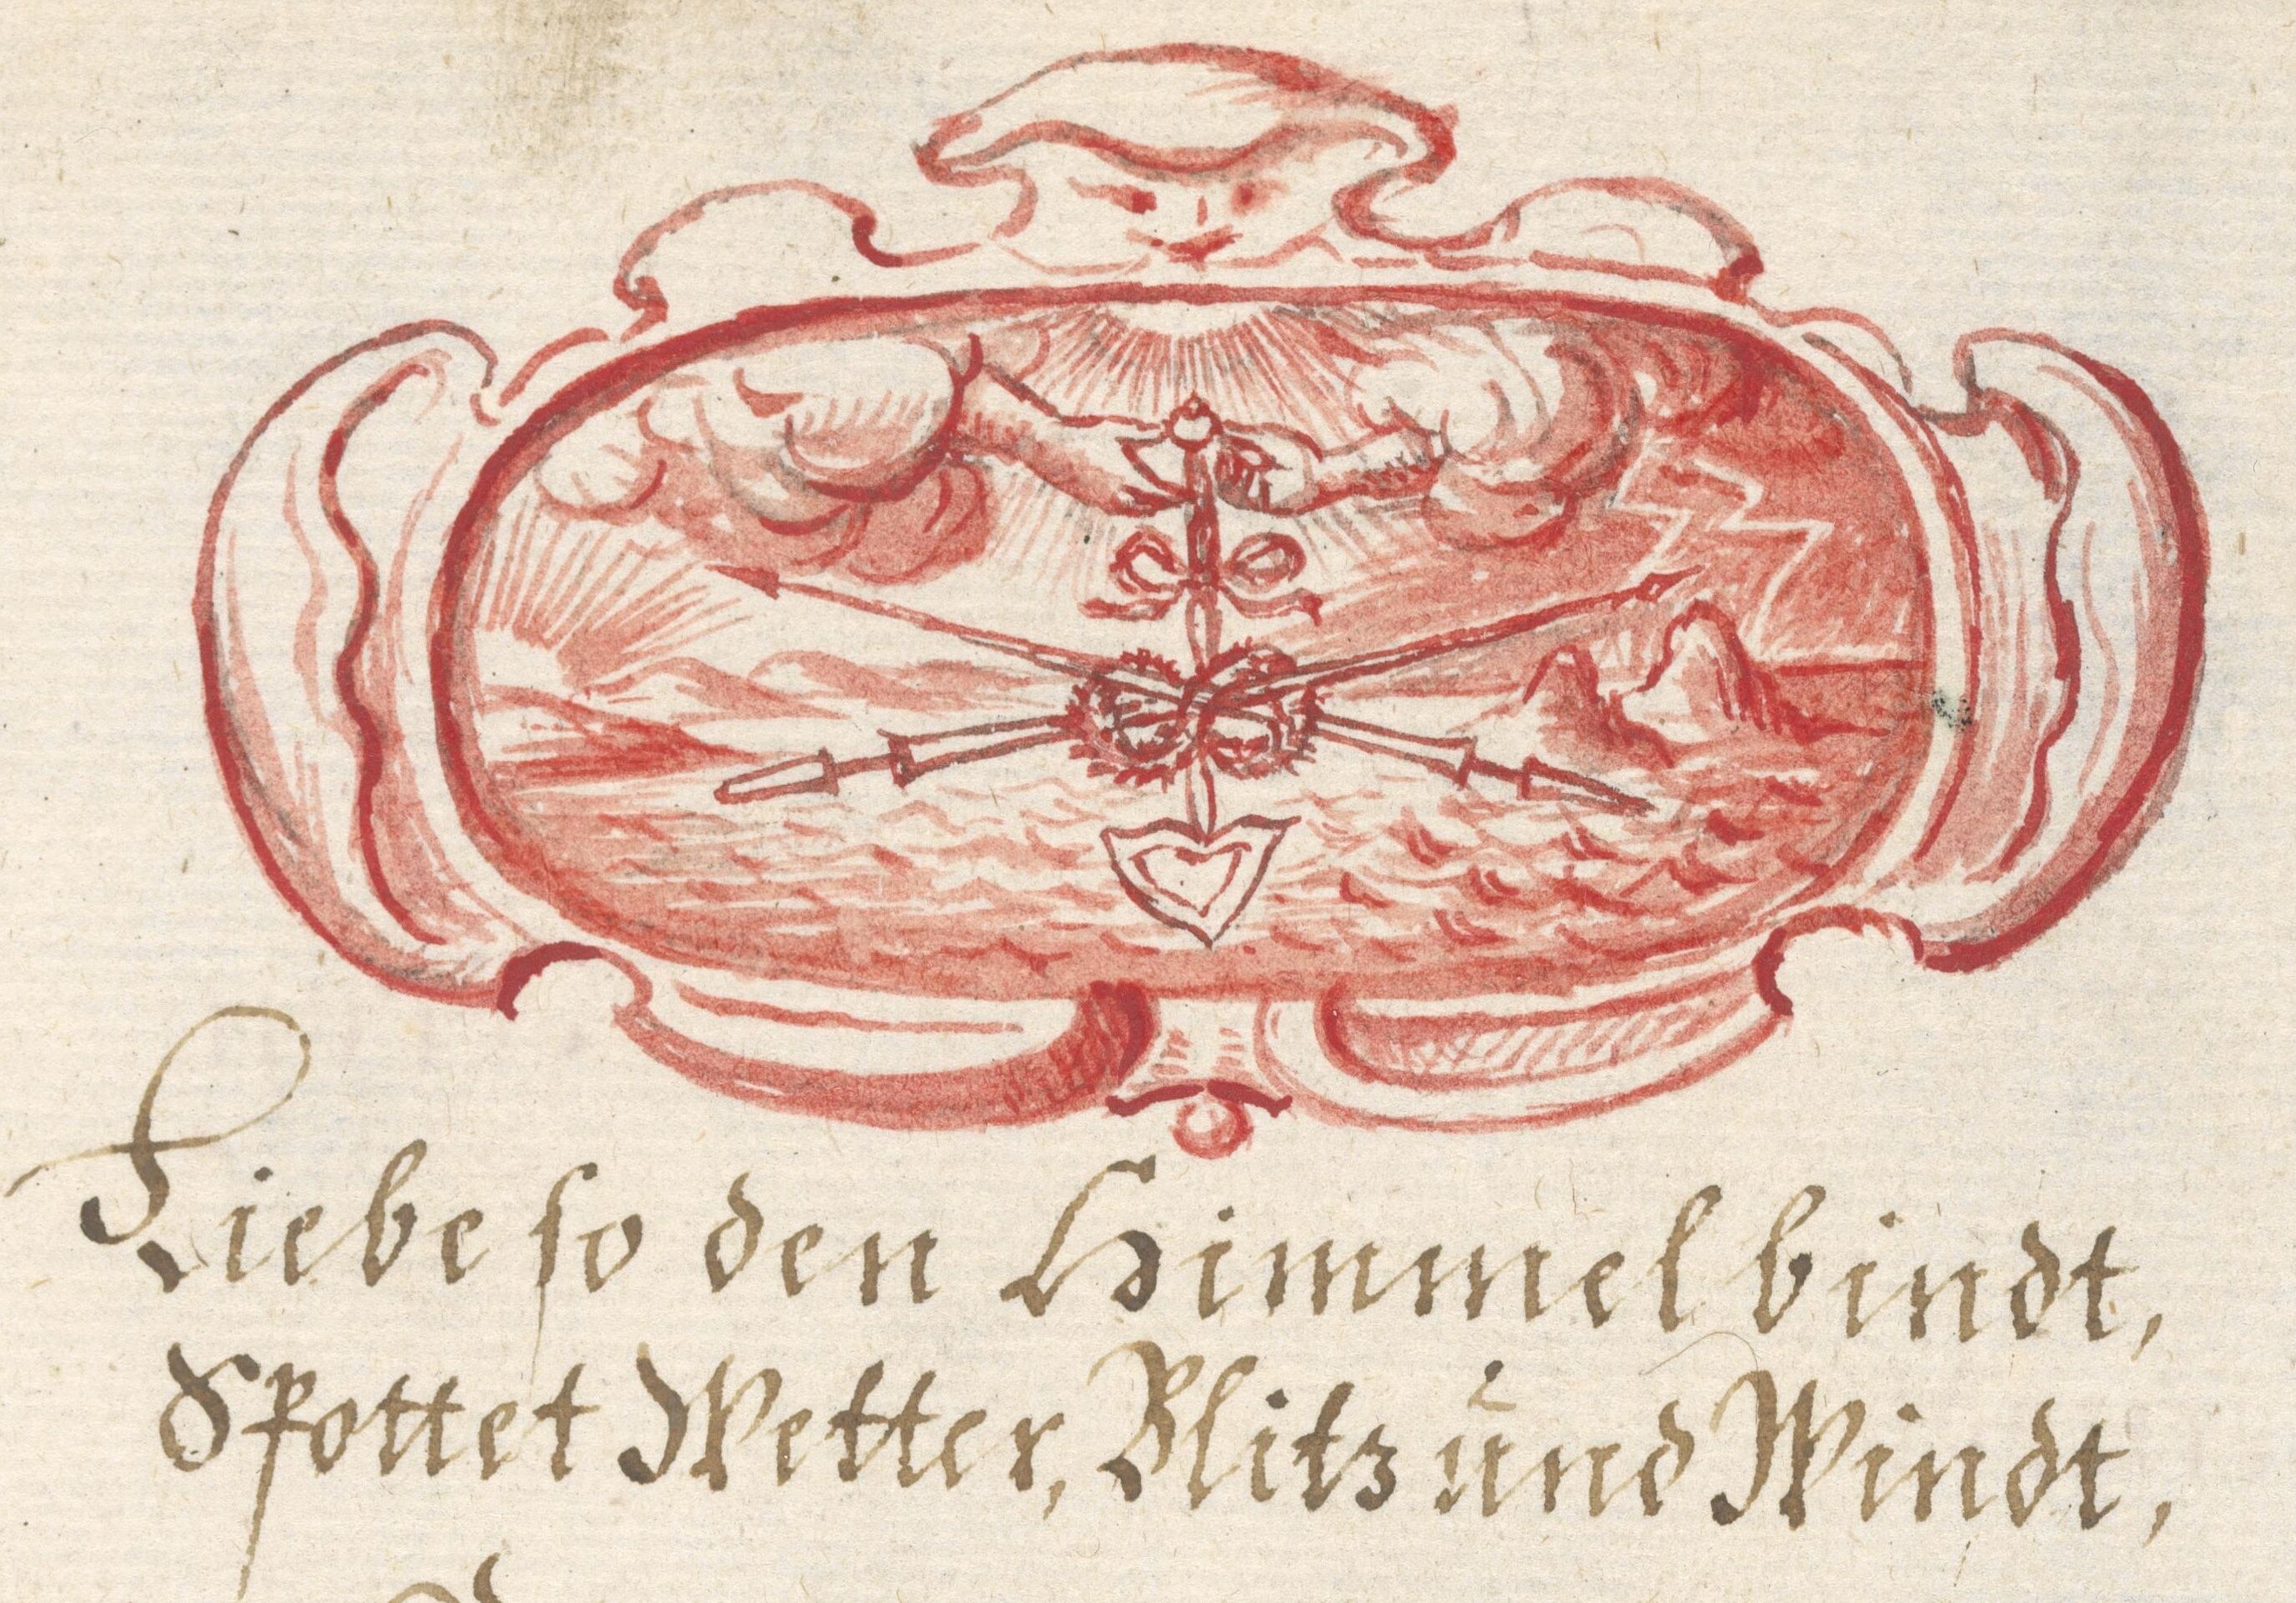 Liebe so den Himmel bindt,
Spottet Wetter, Blitz und Windt,